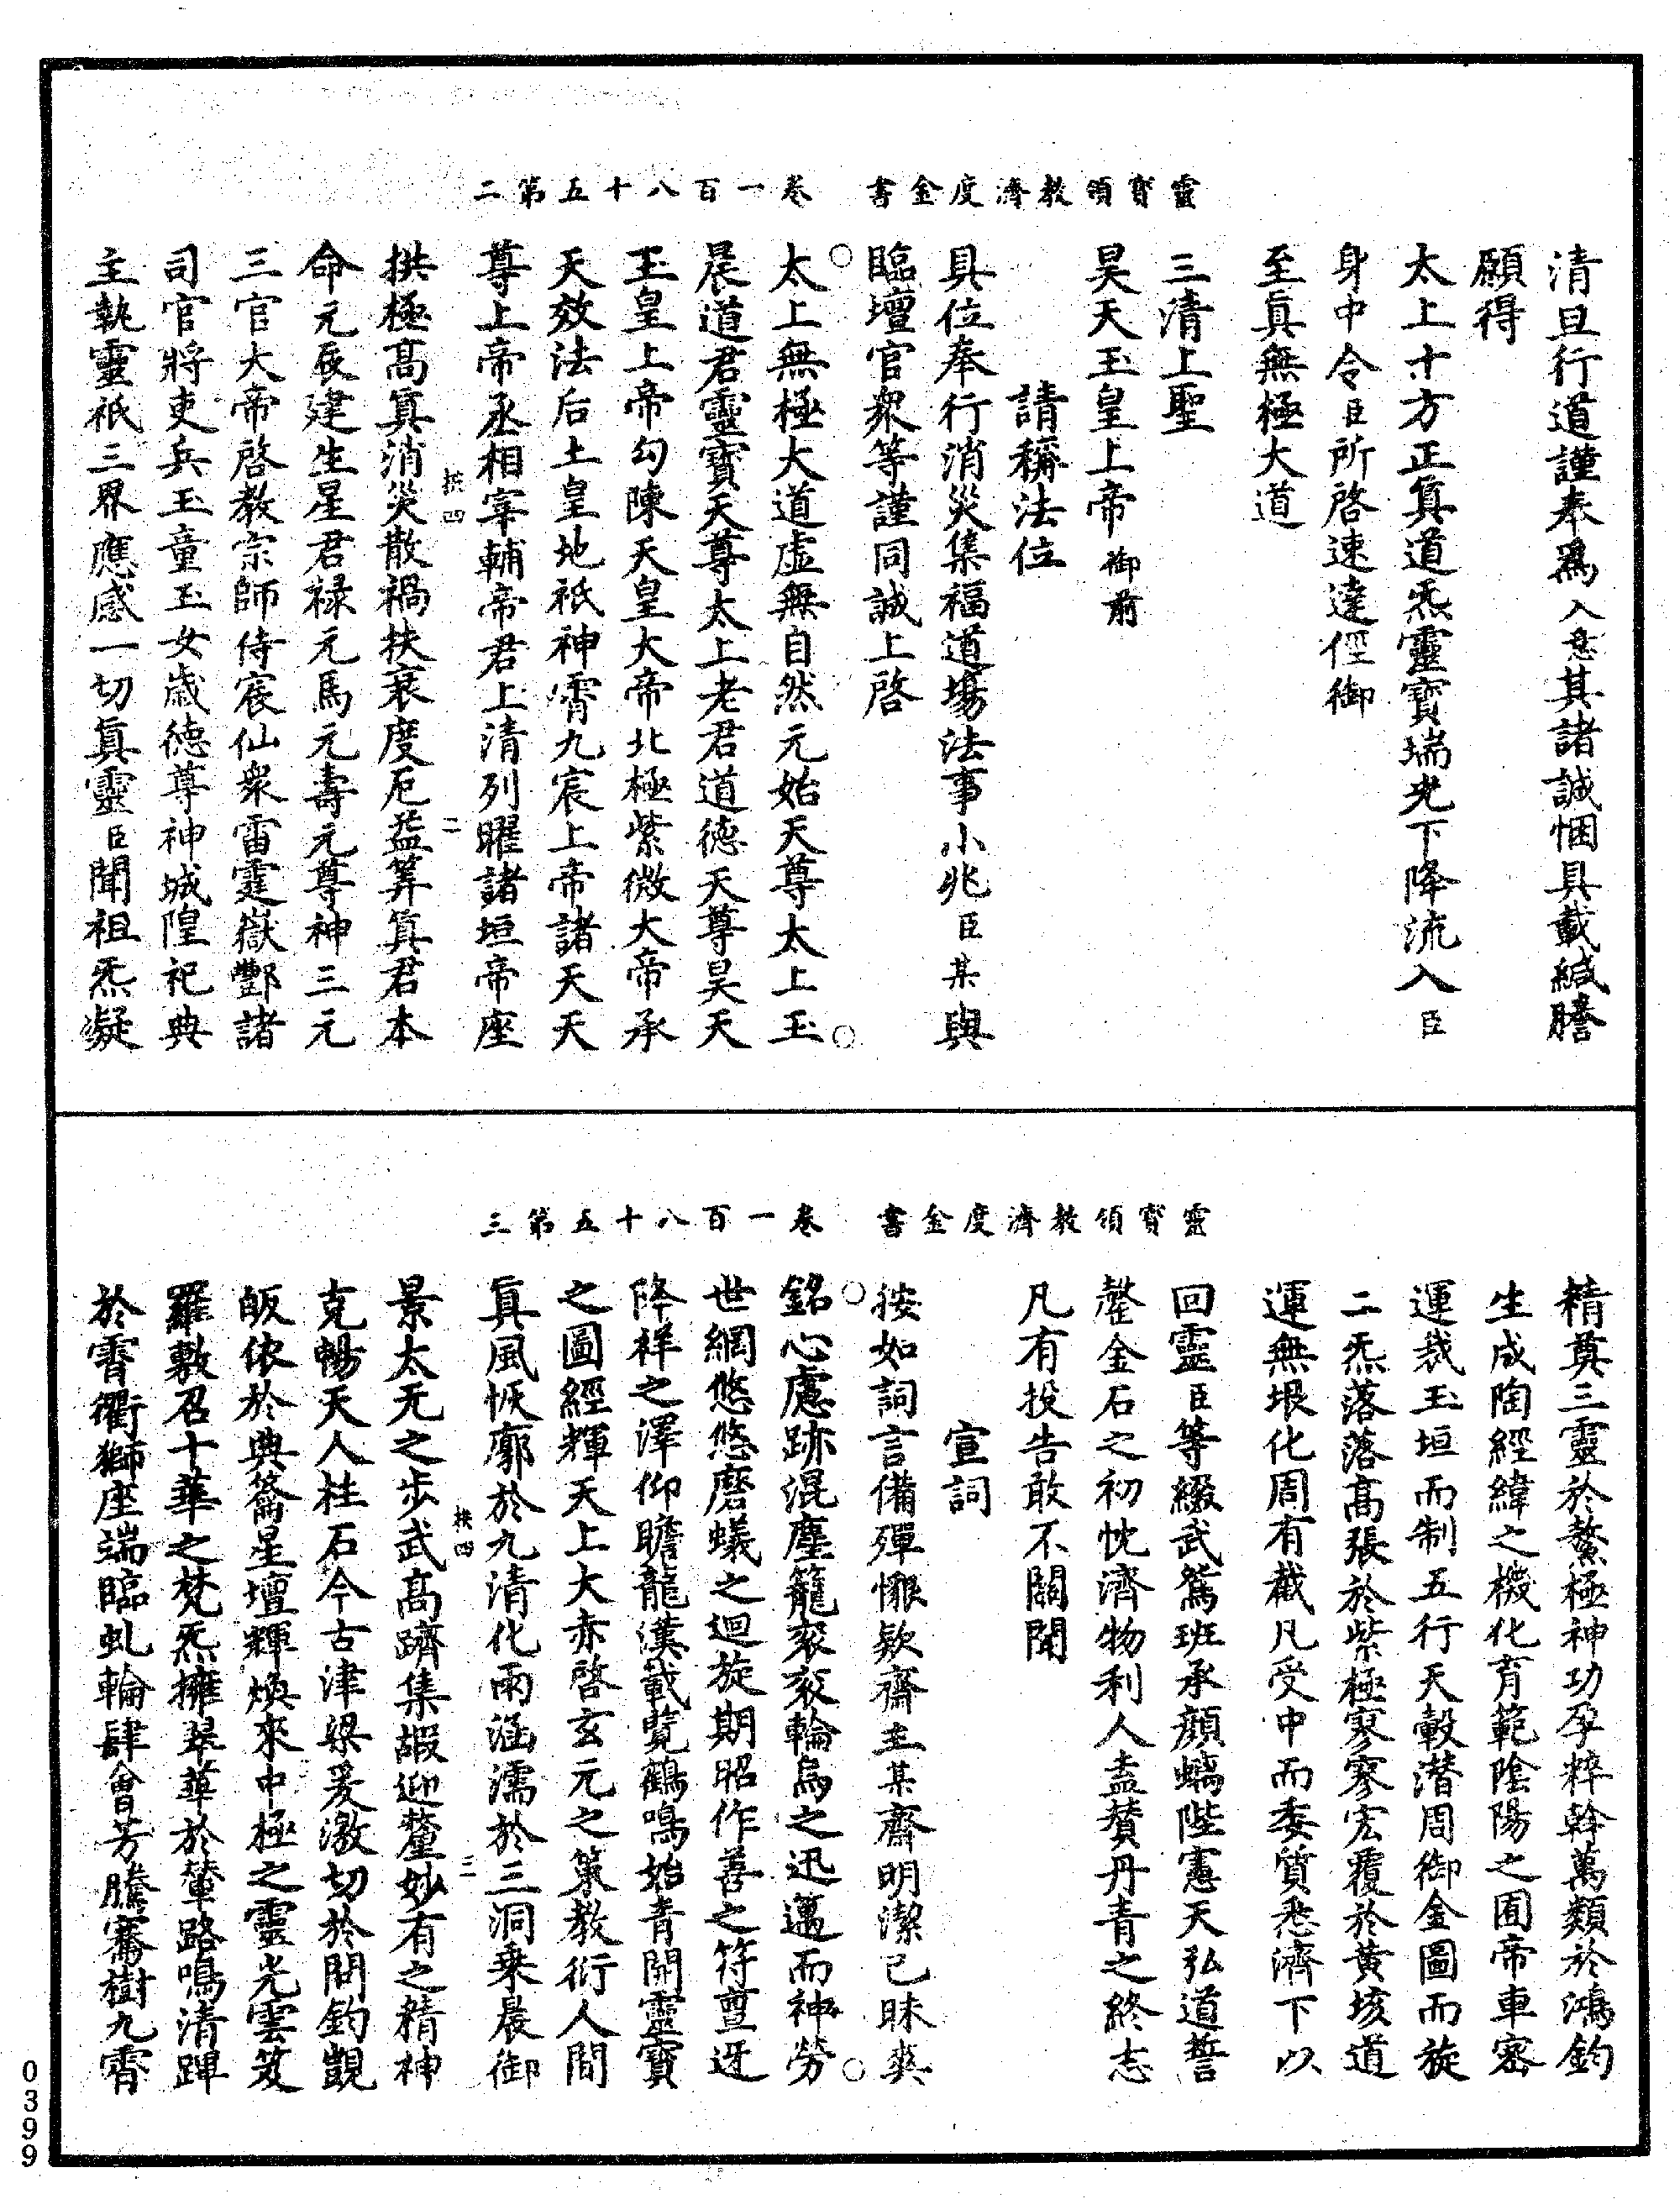 清旦行道謹奉爲入意其諸誠悃具載緘謄
願得
太上十方正真道炁靈寶瑞光下降流入臣
身中令臣所啓速達徑御
至真無極大道
三清上聖
昊天玉皇上帝御前
請稱法位
具位奉行消災集福道場法事小兆臣某與
臨壇官衆等謹同誠上啓
靈寶領教濟度金書　卷一百八十五第二
太上無極大道虛無自然元始天尊太上玉
晨道君靈寶天尊太上老君道德天尊昊天
玉皇上帝勾陳天皇大帝北極紫微大帝承
天效法后土皇地祇神霄九宸上帝諸天天
尊上帝丞相宰輔帝君上清列曜諸垣帝座
扶四　二
拱極高真消災散禍扶衰度厄益筭真君本
命元辰建生星君祿元馬元壽元尊神三元
三官大帝啓教宗師侍宸仙衆雷霆嶽酆諸
司官將吏兵玉童玉女歲德尊神城隍祀典
主執靈祇三界應感一切真靈臣聞祖炁凝
精奠三靈於鰲極神功孕粹幹萬類於鴻鈞
生成陶經緯之機化育範陰陽之囿帝車密
運裁玉垣而制五行天轂潛周御金圖而旋
二炁落落高張於紫極寥寥宏覆於黃垓道
運無垠化周有截凡受中而委質悉濟下以
回靈臣等綴武鵷班承顏螭陛憲天弘道誓
罄金石之初忱濟物利人盍贊丹青之終志
凡有投告敢不關聞
宣詞
按如詞言備殫懇款齋主某齋明潔已昧爽
靈寶領教濟度金書　卷一百八十五第三
銘心慮跡混塵籠衮衮輪烏之迅邁而神勞
世網悠悠磨蟻之迴旋期昭作善之符亶迓
降祥之澤仰瞻龍漢載覽鶴鳴始青開靈寶
之圖經輝天上大赤啓玄元之策教衍人間
真風恢廓於九清化雨涵濡於三洞乘晨御
扶四　三
景太无之步武高躋集嘏迎釐妙有之精神
克暢天人柱石今古津梁爰激切於問鈞覬
皈依於典籥星壇輝煥來中極之靈光雲笈
羅敷召十華之梵炁擁翠華於輦路鳴清蹕
於霄衢獅座端臨虬輪肆會芳騰騫樹九霄
0399